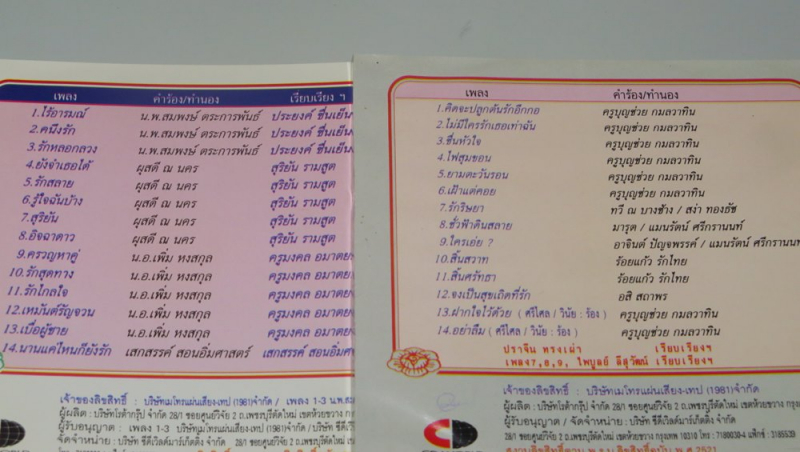 เพลง คำร้อง/ทำนอง เรียบเรียง ฯ
1.ไร้อารมณ์ น.พ.สมพงษ์ ตระการพันธ์ ประยงค์ ชื่นเย็น
2.คนึงรัก น.พ.สมพงษ์ ตระการพันธ์ ประยงค์ ชื่นเย็น
3.รักหลอกลวง น.พ.สมพงษ์ ตระการพันธ์ ประยงค์ ชื่นเย็น
4.ยังจำเธอได้ ผุสดี ณ นคร สุริยัน รามสูต
5.รักสลาย ผุสดี ณ นคร สุริยัน รามสูต
6.รู้ใจฉันบ้าง ผุสดี ณ นคร สุริยัน รามสูต
7.สุริยัน ผุสดี ณ นคร สุริยัน รามสูต
8.อิจฉาดาว ผุสดี ณ นคร สุริยัน รามสูต
9.ครวญหาคู่ น.อ.เพิ่ม หงสกุล ครูมงคล อมาตย
10.รักสุดทาง น.อ.เพิ่ม หงสกุล ครูมงคล อมาตย
11.รักไกลใจ น.อ.เพิ่ม หงสกุล ครูมงคล อมาตย
12.เหมันต์รัญจวน น.อ.เพิ่ม หงสกุล ครูมงคล อมาตย
13.เบื่อผู้ชาย น.อ.เพิ่ม หงสกุล ครูมงคล อมาตย
14.นานแค่ไหนก็ยังรัก เสกสรรค์ สอนอิ่มศาสตร์ เสกสรรค์ สอนอิ่ม
เจ้าของลิขสิทธิ์ : บริษัทเมโทรแผ่นเสียง-เทป (1981)จำกัด / เพลง 1-3 น.พ.
ผู้ผลิต : บริษัทโรต้ากรุ๊ป จำกัด 28/1 ซอยศูนย์วิจัย 2 ถ.เพชรบุรีตัดใหม่ เขตห้วยขวาง
ผู้รับอนุญาต : เพลง 1-3 บริษัทเมโทรแผ่นเสียง-เทป (1981)จำกัด / บริษัท ซีดี
จัดจำหน่าย : บริษัท ซีดีเวิลด์มาร์เก็ตติ้ง จำกัด 28/1 ซอยศูนย์วิจัย 2 ถ.เพชรบุรี
เพลง คำร้อง/ทำนอง
1.คิดจะปลูกต้นรักอีกกอ ครูบุญช่วย กมลวาทิน
2.ไม่มีใครรักเธอเท่าฉัน ครูบุญช่วย กมลวาทิน
3.ชื่นหัวใจ ครูบุญช่วย กมลวาทิน
4.ไฟสุมขอน ครูบุญช่วย กมลวาทิน
5.ยามตะวันรอน ครูบุญช่วย กมลวาทิน
6.เฝ้าแต่คอย ครูบุญช่วย กมลวาทิน
7.รักริษยา ทวี ณ บางช้าง / สง่า ทองธัช
8.ชั่วฟ้าดินสลาย มารุต / แมนรัตน์ ศรีกรานนท์
9.ใครเอ่ย ? อาจินต์ ปัญจพรรค์ / แมนรัตน์ ศรีกรานนท์
10.สิ้นสวาท ร้อยแก้ว รักไทย
11.สิ้นศรัทธา ร้อยแก้ว รักไทย
12.จงเป็นสุขเถิดที่รัก อสิ สถาพร
13.ฝากใจไว้ด้วย ( ศรีไศล / วินัย : ร้อง ) ครูบุญช่วย กมลวาทิน
14.อย่าลืม ( ศรีไศล / วินัย : ร้อง ) ครูบุญช่วย กมลวาทิน
ปราจีน ทรงเผ่า เรียบเรียงฯ
เพลง7,8,9, ไพบูลย์ ลีสุวัฒน์ เรียบเรียงฯ
เจ้าของลิขสิทธิ์ : บริษัทเมโทรแผ่นเสียง-เทป (1981)จำกัด
ผู้ผลิต : บริษัทโรต้ากรุ๊ป จำกัด 28/1 ซอยศูนย์วิจัย 2 ถ.เพชรบุรีตัดใหม่ เขตห้วยขวาง กรุง
ผู้รับอนุญาต / จัดจำหน่าย : บริษัท ซีดีเวิลด์มาร์เก็ตติ้ง จำกัด
28/1 ซอยศูนย์วิจัย 2 ถ.เพชรบุรีตัดใหม่ เขตห้วยขวาง กรุงเทพ 10310 โทร : 7180030-4 แฟ็กซ์ : 3185539